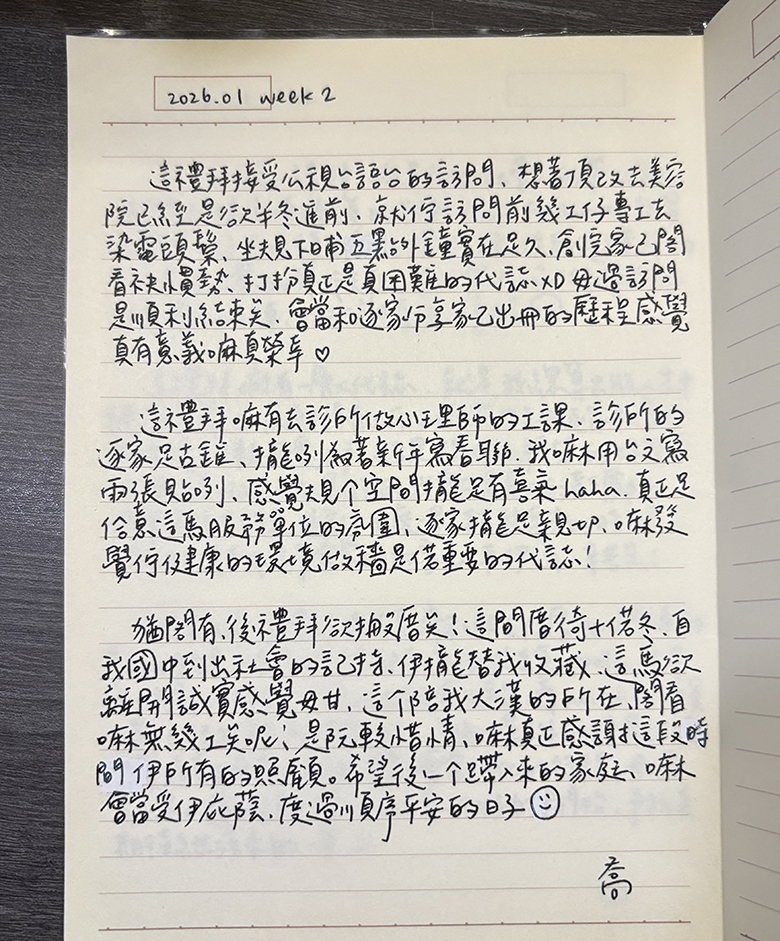 2026.01 week 2
這禮拜接受公視台語台的訪問、想著頂改去美容
院已經是欲半冬進前、就佇訪問前幾工仔專工去
染電頭鬃、坐規下晡五點外鐘實在足久、創完家己閣
看袂慣勢、打扮真正是真困難的代誌XD 毋過訪問
是順利結束矣、會當和逐家分享家己出冊的歷程感覺
真有意義嘛真榮幸♡
這禮拜嘛有去診所做心理師的工課、診所的
逐家足古錐、攏咧為著新年寫春聯、我嘛用台文寫
兩張貼咧、感覺規个空間攏足有喜氣 haha. 真正足
佮意這馬服務單位的氛圍、逐家攏足親切、嘛發
覺佇健康的環境做穡是偌重要的代誌!
猶閣有、後禮拜欲搬厝矣! 這間厝徛十偌冬、自
我國中到出社會的記持、伊攏替我收藏、這馬欲
離開誠實感覺毋甘、這个陪我大漢的所在、閣看
嘛無幾工矣呢; 是阮較惜情、嘛真正感謝這段時
間伊所有的照顧。希望後一个蹛入來的家庭、嘛
會當受伊庇蔭、度過順序平安的日子☺
喬